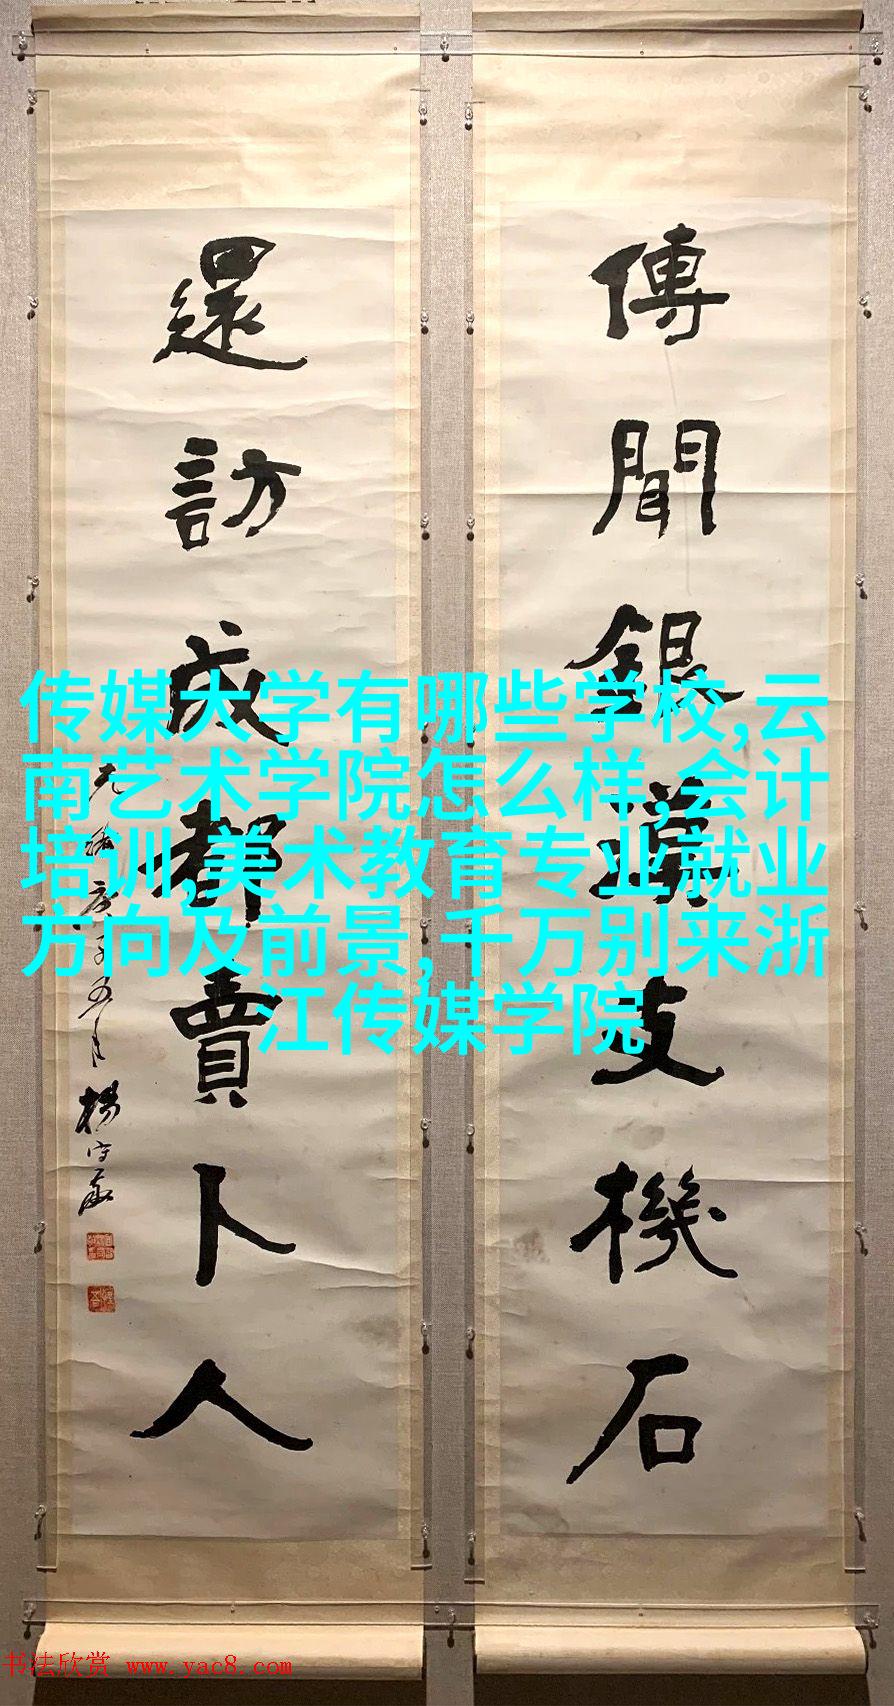 傳聞銀漢支機石
還訪成都賣卜人
光緒庚子五月楊守敬
传媒大学有哪些学校,云
南艺术学院怎么样,会计
培训,美术教育专业就业
方向及前景,千万别来浙
江传媒学院
书法欣赏 www.yac8.com